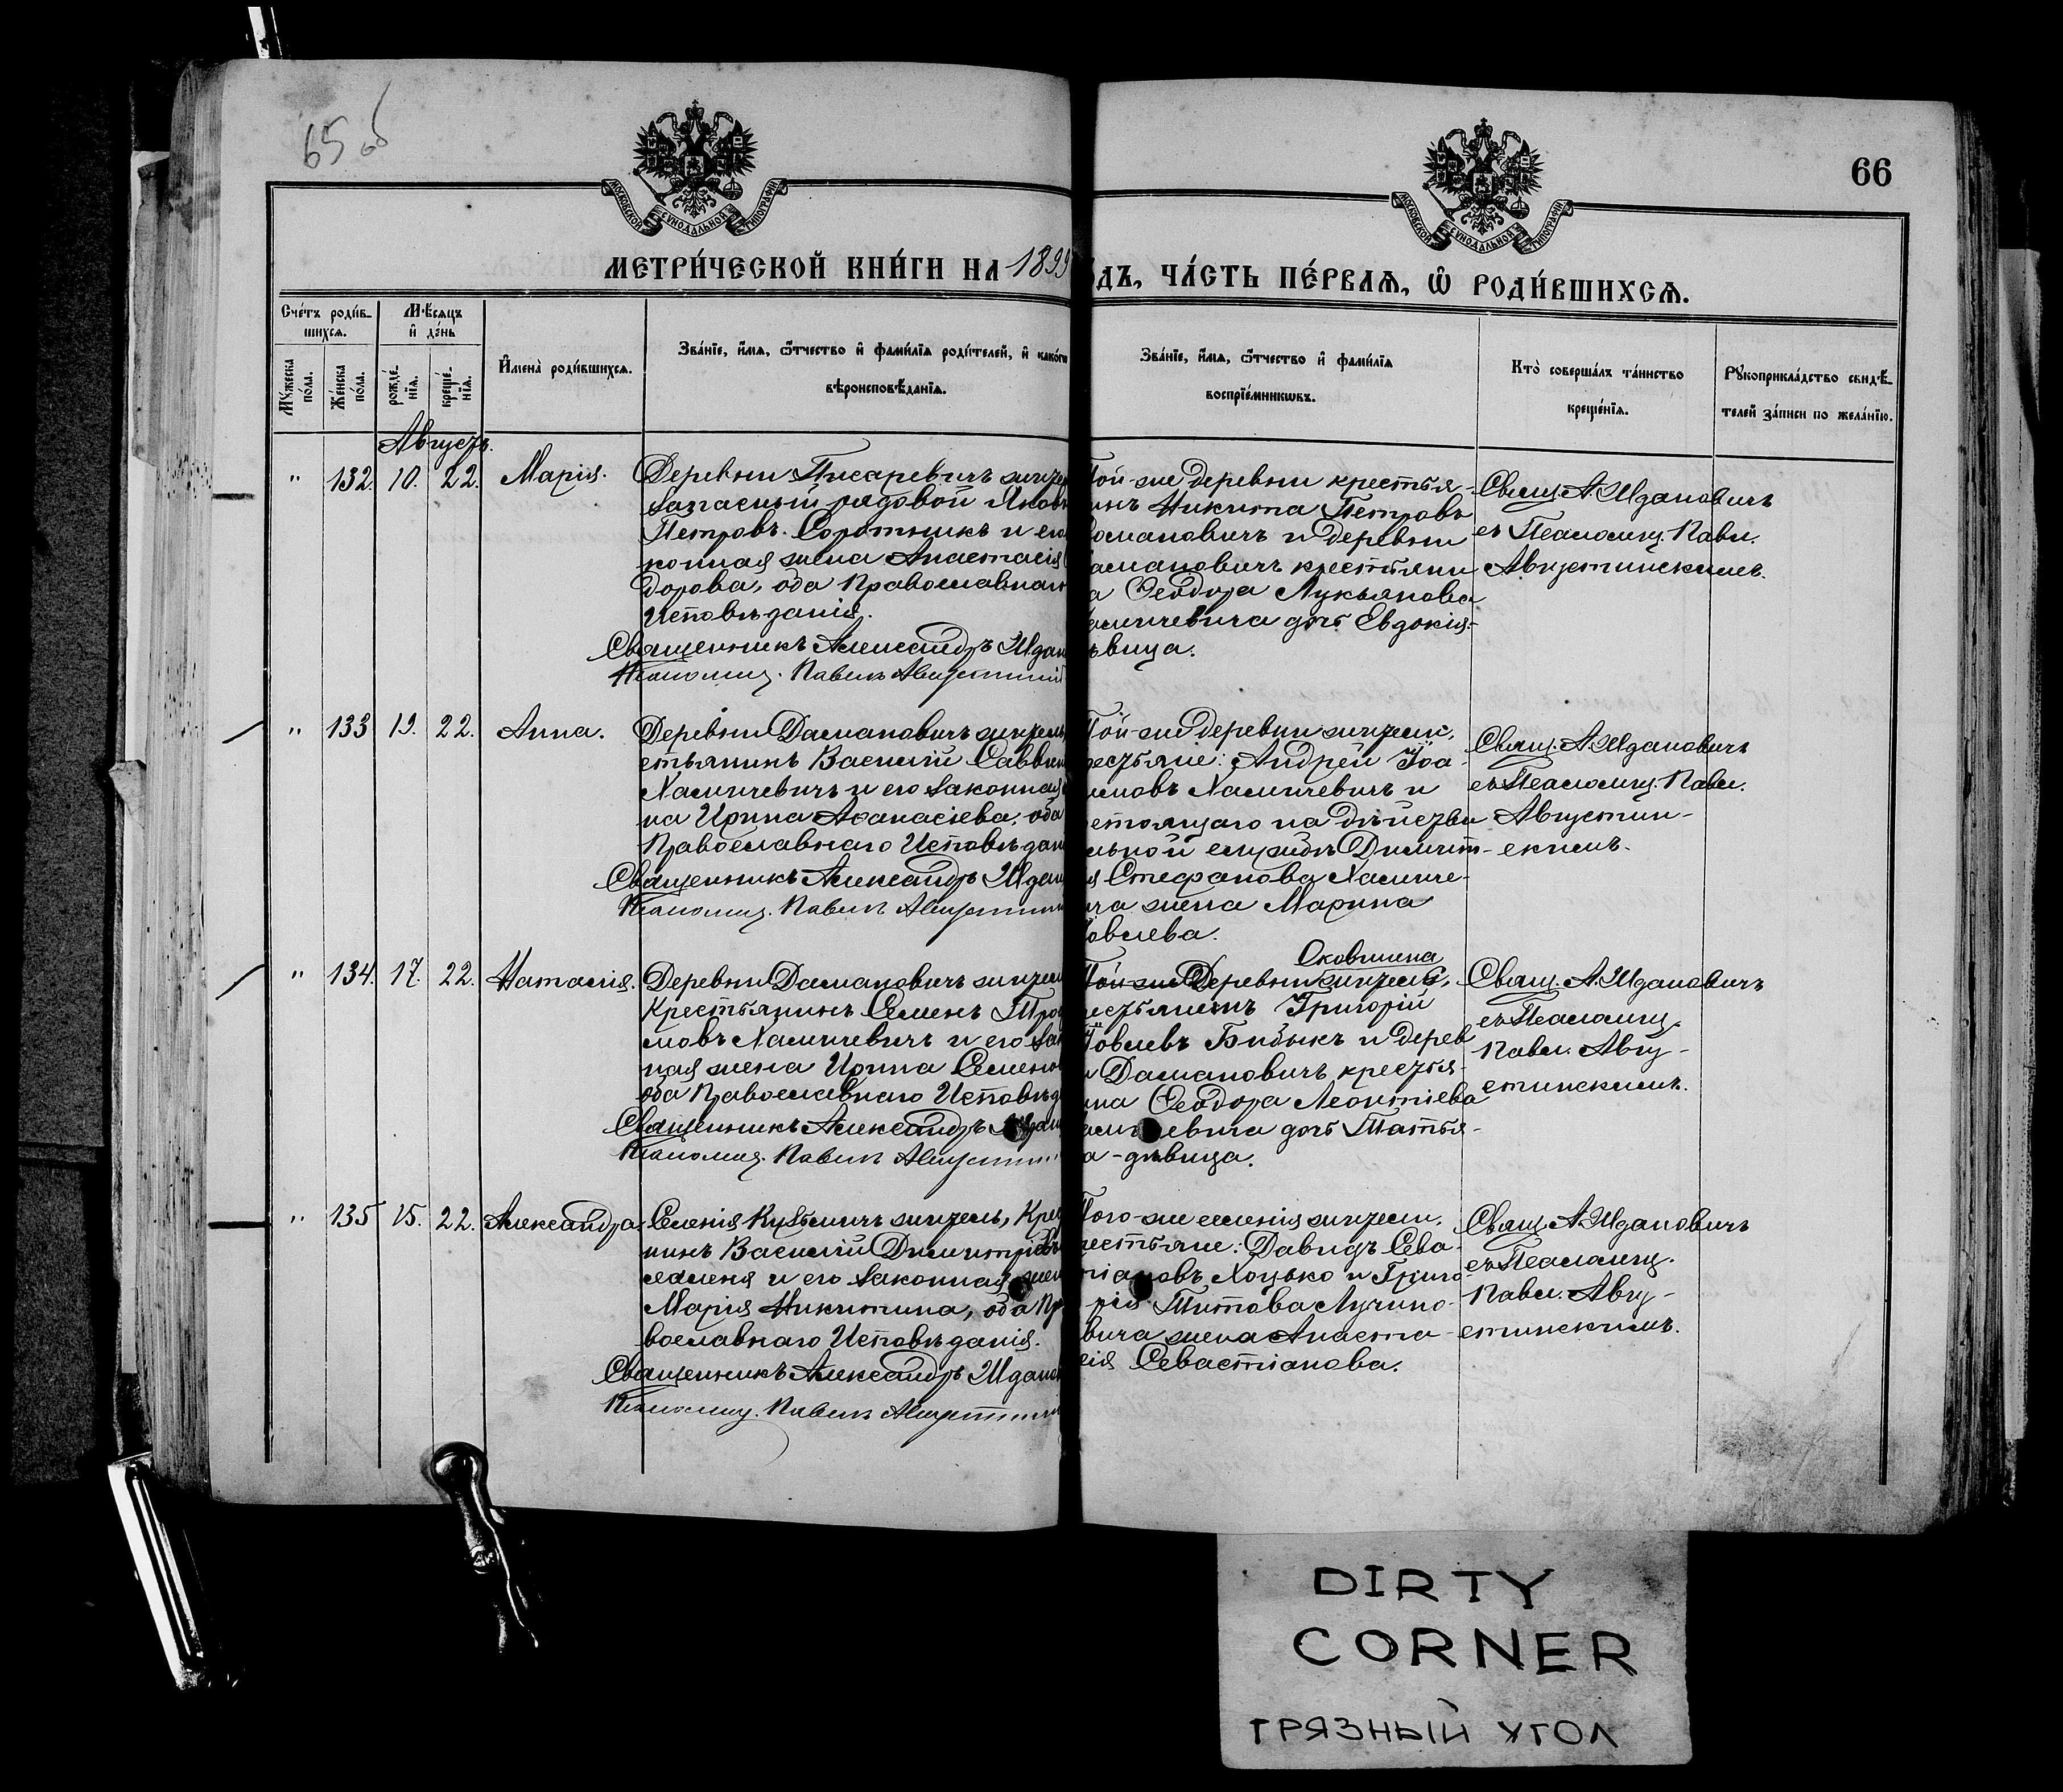 65 об
66
МОСКОВСКОЙ СѴНОДАЛЬНОЙ ТИПОГРАФІИ
МОСКОВСКОЙ СѴНОДАЛЬНОЙ ТИПОГРАФІИ
МЕТРИ́ЧЕСКОЙ КНИ́ГИ НА 1899
ДЪ, ЧА́СТЬ ПЕ́РВАѦ, Ѡ҆ РОДИ́ВШИХСѦ.
Сче́тъ роди́в-
шихсѧ.
Мꙋ́жеска по́ла.
Же́нска по́ла.
Мѣ́сѧцъ
и҆ де́нь
рожде́-нїѧ.
креще́-нїѧ.
И҆мена̀ роди́вшихсѧ.
Зва́нїе, и҆́мѧ, ѻ҆́тчество и҆ фами́лїѧ роди́телей, и҆ како́гѡ
вѣроисповѣ́данїѧ.
Зва́нїе, и҆́мѧ, ѻ҆́тчество и҆ фами́лїѧ
воспрїе́мникѡвъ.
Кто̀ соверша́лъ та́инство
креще́нїѧ.
Рꙋкоприкла́дство свидѣ́-
телей за́писи по жела́нїю.
Августъ.
" 132. 10. 22. Марія.
Деревни Писаревичъ жител
запасный рядовой Яковъ
Петровъ Соротникъ и его
конная жена Анастасія
дорова, оба Православнаго
Исповѣданія.
Священникъ Александръ Ждан
Псаломщ. Павелъ Августин
Той-же деревни крестья-
инъ Никита Петровъ
омановичъ и деревни
амановичъ крестьяни
а Ѳеодора Лукьянова
амичевича дочь Евдокія-
ѣвица.
Свящ. А. Ждановичъ
съ Псаломщ. Павл.
Августинскимъ.
" 133 19. 22. Анна.
Деревни Дамановичъ житель
стьянинъ Василій Саввин
Хамичевичъ и его законная
на Ирина Аѳанасіева, оба
Православнаго Исповѣдан
Священникъ Александръ Ждан
Псаломщ. Павелъ Августин
Той-же деревни жители,
рестьяне: Андрей Іоа-
имовъ Хамичевичъ и
остоящаго на дѣйстви
ельной службѣ Димитр-
ія Стефанова Хамиче-
ича жена Марина
овлева.
Свящ. А. Ждановичъ
съ Псаломщ. Павл.
Августин-
скимъ.
" 134. 17. 22. Наталія.
Деревни Дамановичъ жител
Крестьянинъ Семенъ Тро
мовъ Хамичевичъ и его зак
ная жена Ирина Семено
оба Православнаго Исповѣд
Священникъ Александръ Ждан
Псаломщ. Павелъ Августин
Сковшина
Той-же Деревни житель,
рестьянинъ Григорій
овлевъ Бибикъ и дерев
и Дамановичъ крестья-
ина Ѳеодора Леонтіева
амичевича дочь Татья-
а-дѣвица.
Свящ. А. Ждановичъ
съ Псаломщ.
Павл. Авгу-
стинскимъ.
" 135 15. 22. Александра.
Селенія Кузьмичъ житель, Кре
нинъ Василій Димитріевъ
и его законная жен
Марія Никитина, оба Пр
вославнаго Исповѣданія.
Священникъ Александръ Ждано
Псаломщ. Павелъ Августин
Того-же селенія жители,
рестьяне: Давидъ Сева-
тіановъ Хоцько и Григо-
рія Титова Лучино-
вича жена Анаста-
сія Севастіанова.
Свящ. А. Ждановичъ
съ Псаломщ.
Павл. Авгу-
стинскимъ.
DIRTY
CORNER
ГРЯЗНЫЙ УГОЛ